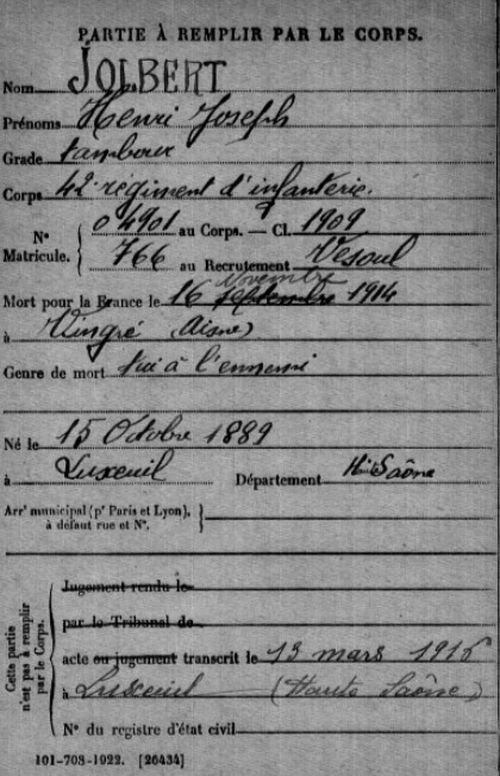 PARTIE À REMPLIR PAR LE CORPS.
Nom JOLBERT
Prénoms Henri Joseph
Grade tambour
Corps 42e régiment d'infanterie.
N° Matricule. { 04901 au Corps. — Cl. 1909
766 au Recrutement Vesoul
novembre
Mort pour la France le 16 septembre 1914
à Vingré (Aisne)
Genre de mort tué à l'ennemi
Né le 15 Octobre 1889
à Luxeuil Département Hte Saône
Arrt municipal (pr Paris et Lyon), }
à défaut rue et N°.
Cette partie n'est pas à remplir par le Corps.
Jugement rendu le
par le Tribunal de
acte ou jugement transcrit le 13 mars 1916
à Luxeuil (Haute Saône)
N° du registre d'état civil
101-708-1922. [26434]